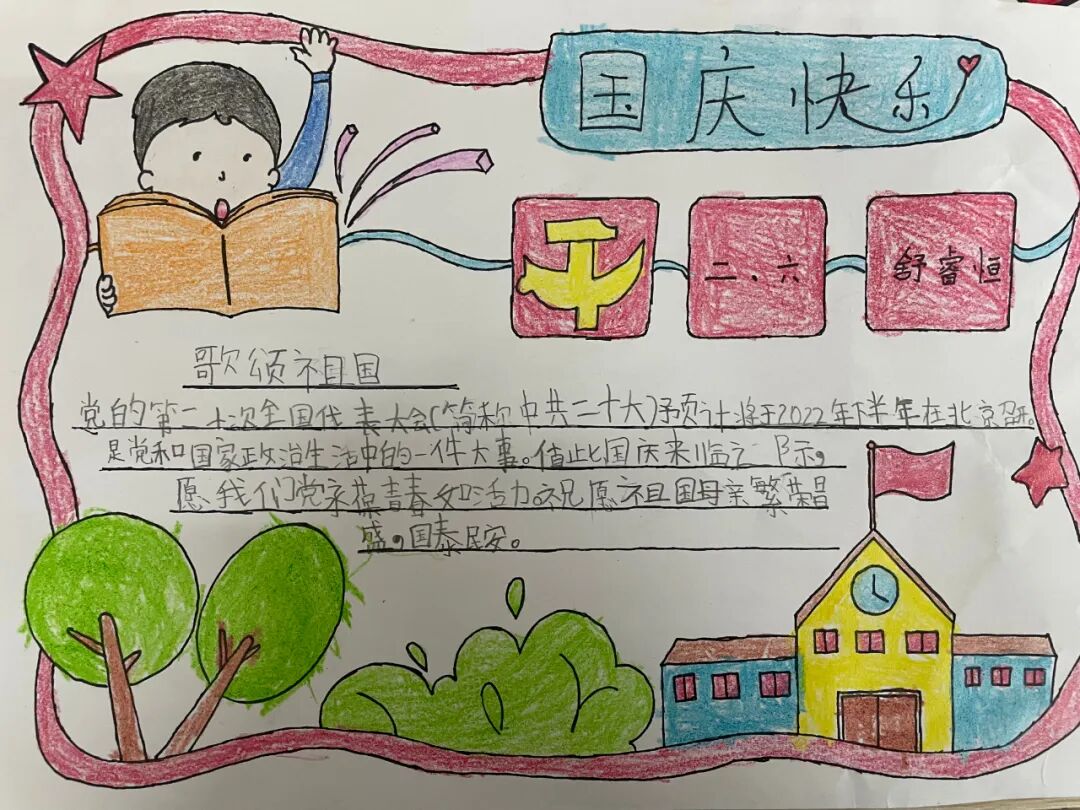 国庆快乐
二、六
舒睿恒
歌颂祖国
党的第二十次全国代表大会(简称中共二十大)预计将于2022年下半年在北京召开。
是党和国家政治生活中的一件大事。值此国庆来临之际，
愿我们党永葆青春如活力。祝愿祖国母亲繁荣昌
盛，国泰民安。